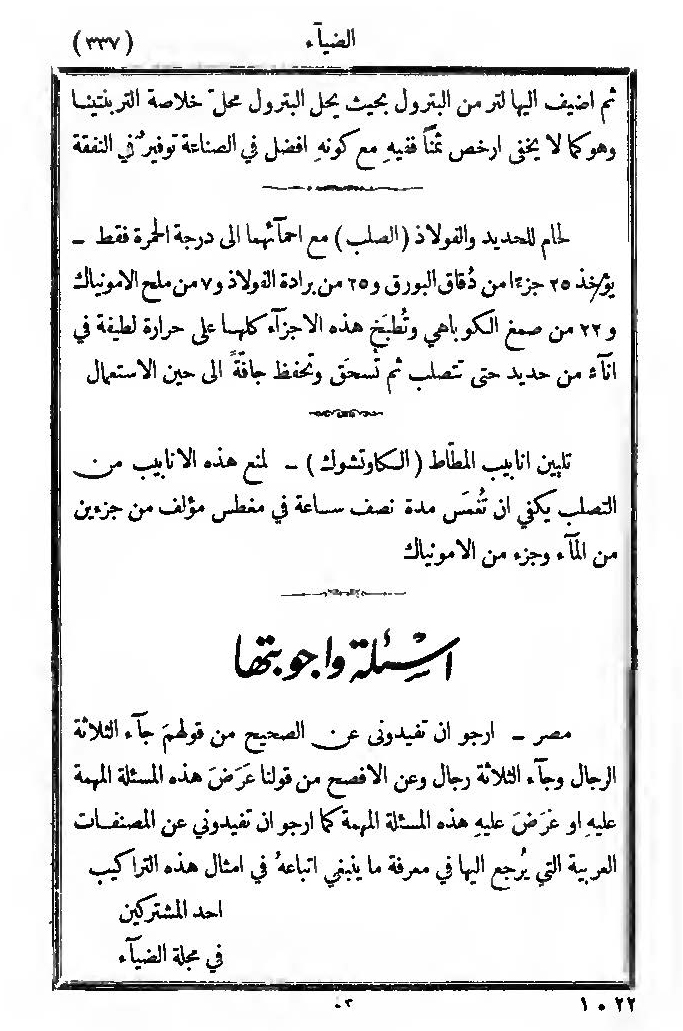 الضيآء
(٣٣٧)
ثم اضيف اليها لتر من البترول بحيث يحل البترول محلّ خلاصة التربنتينا
وهو كما لا يخفى ارخص ثمناً ففيهِ مع كونهِ افضل في الصناعة توفيرٌ في النفقة
لحام للحديد والفولاذ (الصلب) مع احمآئهما الى درجة الحمرة فقط –
يؤخذ ٢٥ جزءًا من دُقاق البورق و٢٥ من برادة الفولاذ و٧ من ملح الامونياك
و٢٢ من صمغ الكوباهي وتُطبَخ هذه الاجزآء كلها على حرارة لطيفة في
انآء من حديد حتى تتصلب ثم تُسحَق وتحفظ جافّةً الى حين الاستعمال
تليين انابيب المطّاط (الكاوتشوك) – لمنع هذه الانابيب من
التصلب يكفي ان تُغمَس مدة نصف ساعة في مغطس مؤلف من جزءين
من المآء وجزء من الامونياك
اسئلة واجوبتها
مصر – ارجو ان تفيدونى عن الصحيح من قولهم جآء الثلاثة
الرجال وجآء الثلاثة رجال وعن الافصح من قولنا عَرَضَ هذه المسئلة المهمة
عليهِ او عَرَضَ عليهِ هذه المسئلة المهمة كما ارجو ان تفيدوني عن المصنفات
العربية التي يُرجع اليها في معرفة ما ينبغي اتباعهُ في امثال هذه التراكيب
احد المشتركين
في مجلة الضيآء